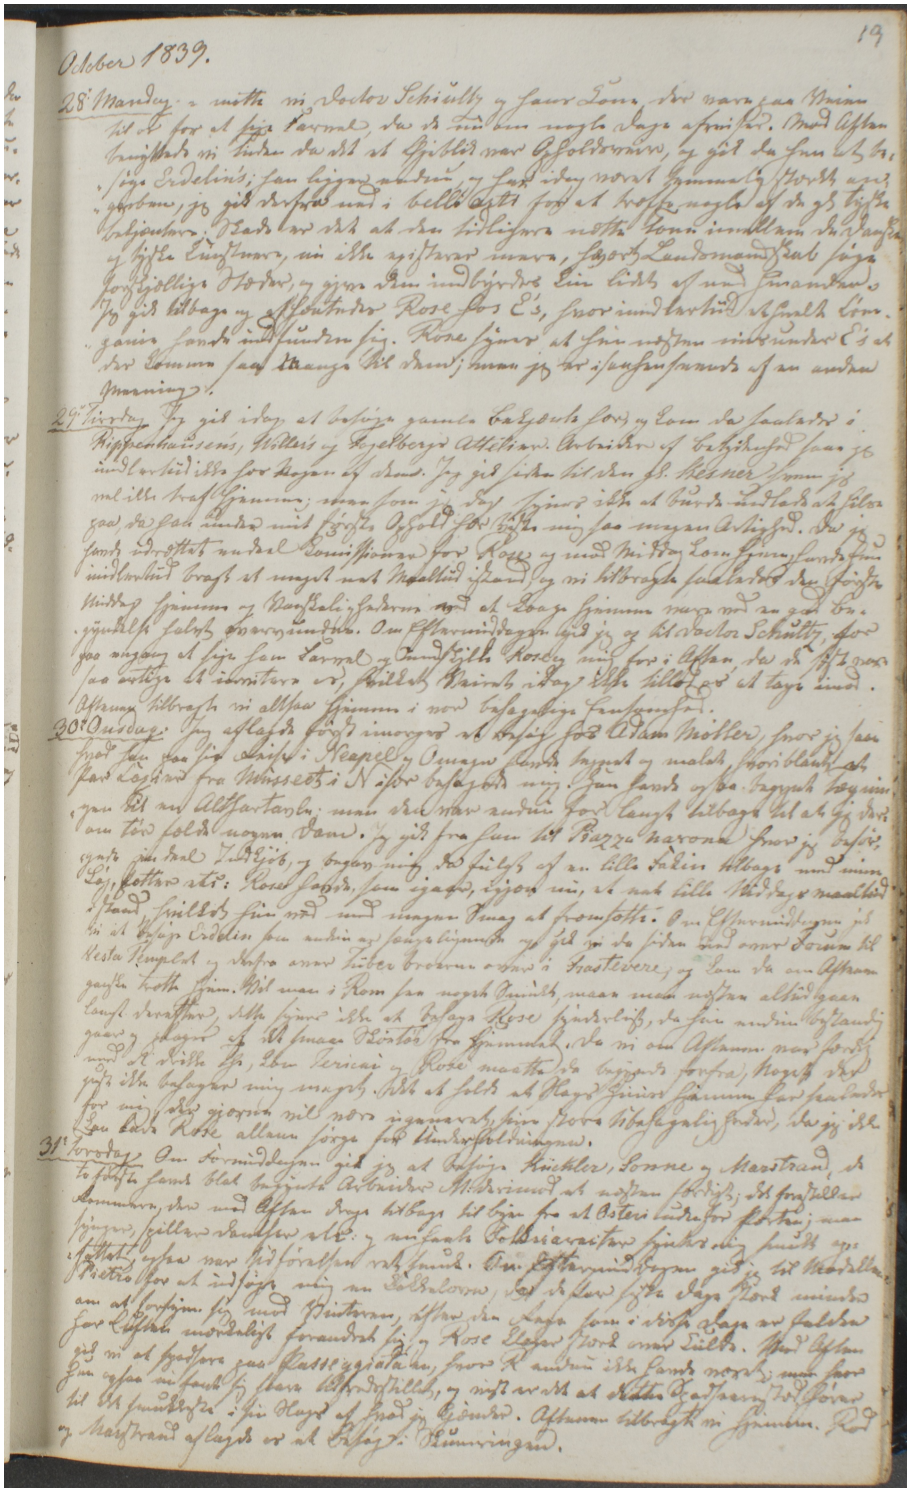 19
October 1839.
28' Mandag. mötte vi Doctor Schultz og hans Kone, der vare paa Veien
til os for at sige Farvel, da de nu om nogle Dage afreiser. Mod Aften
benyttede vi Tiden da det et Öieblik var Opholdsveir, og gik da hen at be-
söge Erdelins; han ligger endnu, og har idag været temmelig stærkt an-
greben, jeg gik derfra ned i belle arti for at træffe nogle af de gl: tydske
bekjendtere. Skade er det at den tidligere nette Tone imellem de Danske
og tydske Kunstnere, nu ikke existerer mere, hvert Landsmandskab söge
forskjellige Stæder, og gjöre dem indbyrdes kun lidet af med hverandre.
Jeg gik tilbage og afhentede Rose hos E's, hvor imidlertid et heelt Com-
pagnie havde indfunden sig. Rose synes at hun næsten misunder E's at
der komme saa mange til dem; men jeg er i saa henseende af en anden
Meening.
29' Tirsdag Jeg gik idag at besöge gamle bekjendte her, og kom da saaledes i
Rippenhausens, Willers og Fogelbergs Attelier. Arbeider af betydenhed saae jeg
imidlertid ikke hos Nogen af dem. Jeg gik siden til den gl. Kesner hvem jeg
vel ikke traf hjemme; men som jeg dog synes ikke at burde undlade at hilse
paa, da han under mit förste Ophold her viste mig saa megen Artighed. Da jeg
havde udrettet endeel Comissioner for Rose og mod Middag kom hjem, havde hun
imidlertid bragt et meget net Maaltid istand, og vi tilbragte saaledes den förste
Middag hjemme og Vanskelighederne ved at koge hjemme vare ved en god Be-
gyndelse halvt overvundne. Om Eftermiddagen gik jeg og til Doctor Schultz, for
paa engang at sige ham Farvel og undskylde Rose og mig for i Aften, da de
saa artige at invitere os, hvilket Veiret idag ikke tillod os at tage imod.
Aftenen tilbragte vi altsaa hjemme i vor behagelige Eensomhed.
30' Onsdag. Jeg aflagde först imorges et besög hos Adam Möller, hvor jeg saae
hvad han paa sin Reise i Neapel og Omegn havde tegnet og malet, hvoriblandt et
Par Copier fra Museet i N især behagede mig. Han havde ogsaa begyndt Tegnin-
gen til en Altertavle; men den var endnu for langt tilbage til at jeg der-
om tör fælde nogen Dom. Jeg gik fra ham til Piazza Navona hvor jeg besör-
gede en deel Indkjöb, og begav mig da fulgt af en lille Fakin tilbage med mine
Lög, Potter etc: Rose havde, som igaar, igjen nu, et net lille Middagsmaaltid
istand, hvilket hun ved med megen Smag at fremsætte. Om Eftermiddagen gik
vi at besöge Erdelin som endnu er sengeliggende og gik vi da siden ned over Forum til
Vesta Templet og derfra over Tiber broerne over i Trastevere, og kom da om Aftenen
ganske trætte hjem. Vil man i Rom see noget Smukt, maae man næsten altid gaae
langt derefter, dette synes ikke at behage Rose synderligt, da hun endnu bestandig
gaaer og af det smaae Skotöi fra Hjemmet. Da vi om Aftenen var færdig
med at drikke The, kom Jerichau og Rose maatte da begynde forfra, Noget der
just ikke behager mig meget. Det at holde et Slags Huus hjemme har saaledes
for mig, der gjerne vil være ugeneret, sine store Ubehageligheder, da jeg ikke
kan lade Rose allene sörge for Underholdningen.
31' Torsdag. Om Formiddagen gik jeg at besöge Küchler, Sonne og Marstrand, de
to förste havde blot begyndte Arbeider M: derimod et næsten færdigt; det forestiller
Romere, der mod Aften drage tilbage til byen fra et Osteri udenfor Porten; man
synger, spiller dandser etc: og enkelte Folkecaracterer syntes mig smukt op-
fattet, ogsaa var Udförelsen ret smuk. Om Eftermiddagen gik jeg til Modellen
Pietro for at udsöge mig en Kakkelovn, da de har sidste Dage stærk minder
om at forsyne sig mod Vinteren, efter den Regn som i disse Dage er falden
har Luften mærkeligt forandret sig og Rose klager stærk over Kulde. Mod Aften
gik vi at spadsere paa Passeggiata'en, hvor R endnu ikke havde været; men hvor
hun ogsaa nu fandt sig svare tilfredsstillet, og vist er det at dette Spadseerested hörer
til det smukkeste i sin Slags af hvad jeg kjender. Aftenen tilbragte vi hjemme. Roed
og Marstrand aflagde os et besög i Skumringen.